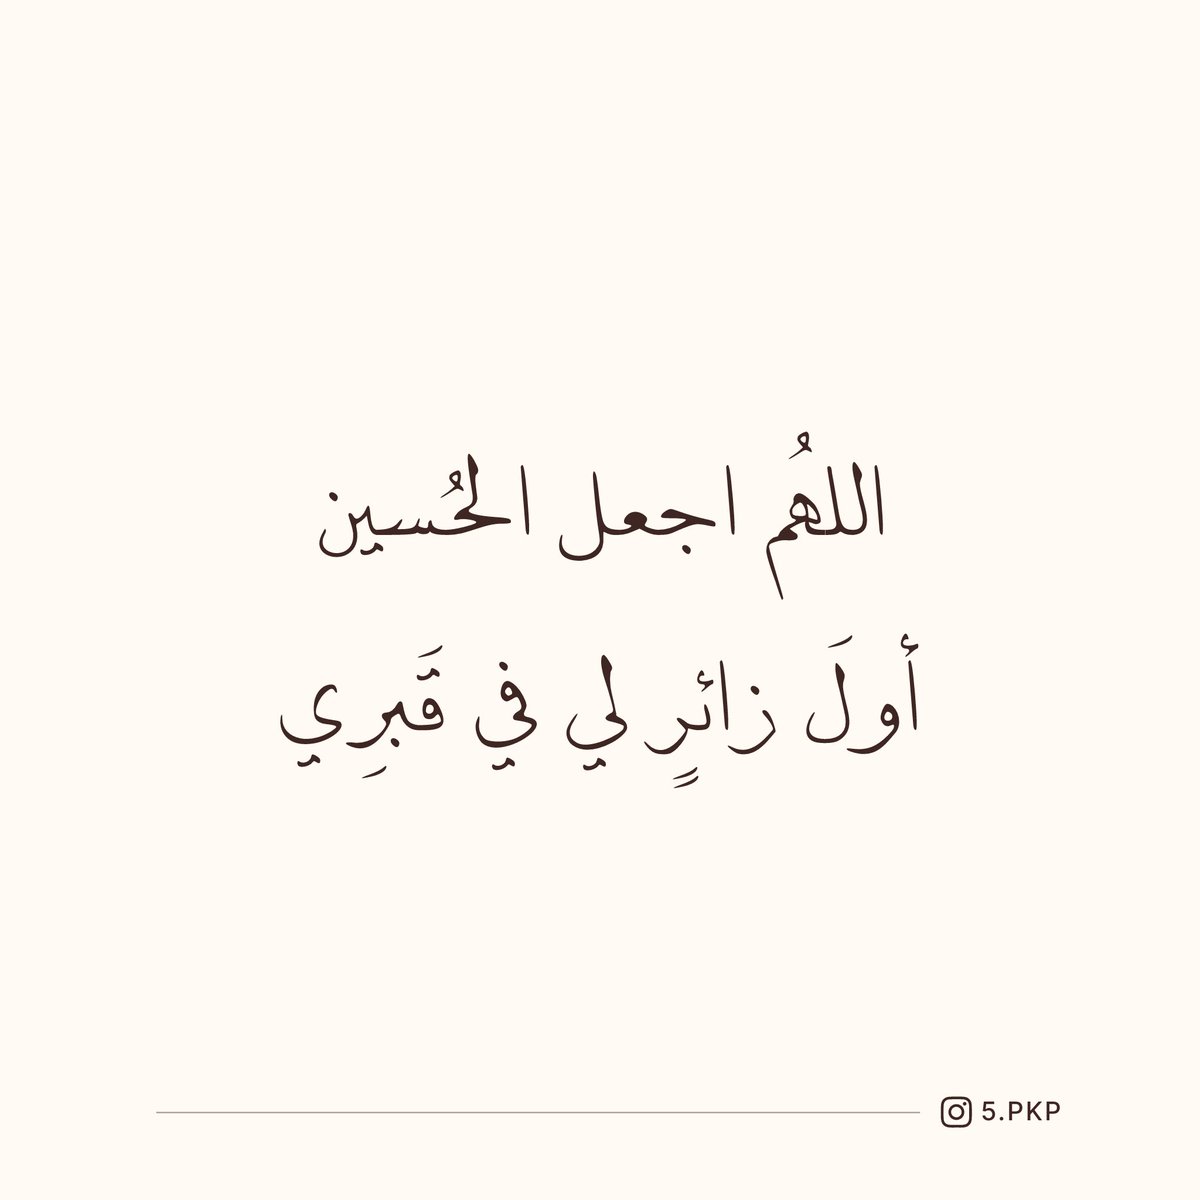 اللهُم اجعل الحُسين
أولَ زائرٍ لي في قَبرِي
5.PKP